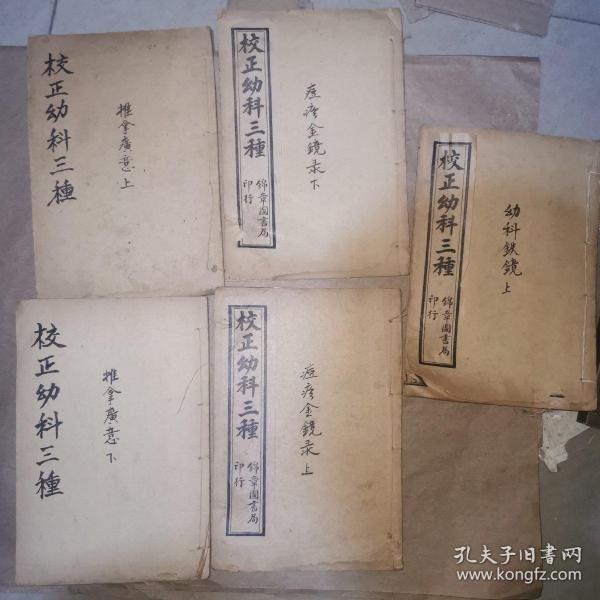 校正幼科三種
推拿廣意上
校正幼科三種
錦章圖書局
印行
痘疹金鏡录
下
校正幼科三種
錦章圖書局
印行
幼科鉄鏡
上
校正幼科三種
推拿廣意
下
校正幼科三種
錦章圖書局
印行
痘疹金鏡录
上
孔夫子旧书网
www.kongfz.com